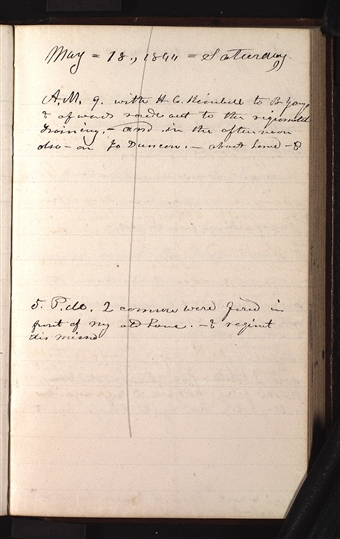 May = 18., 1844 = Saturday.
A.M. 9. with H. C. Kimball to B. Young
& afterwards rode out to the regimental
training. - and in the afternoon
also - on Jo Duncan. - about home - &
5. P.M. 2 cannon were fired in
front of my old house. - & regint
dismissed